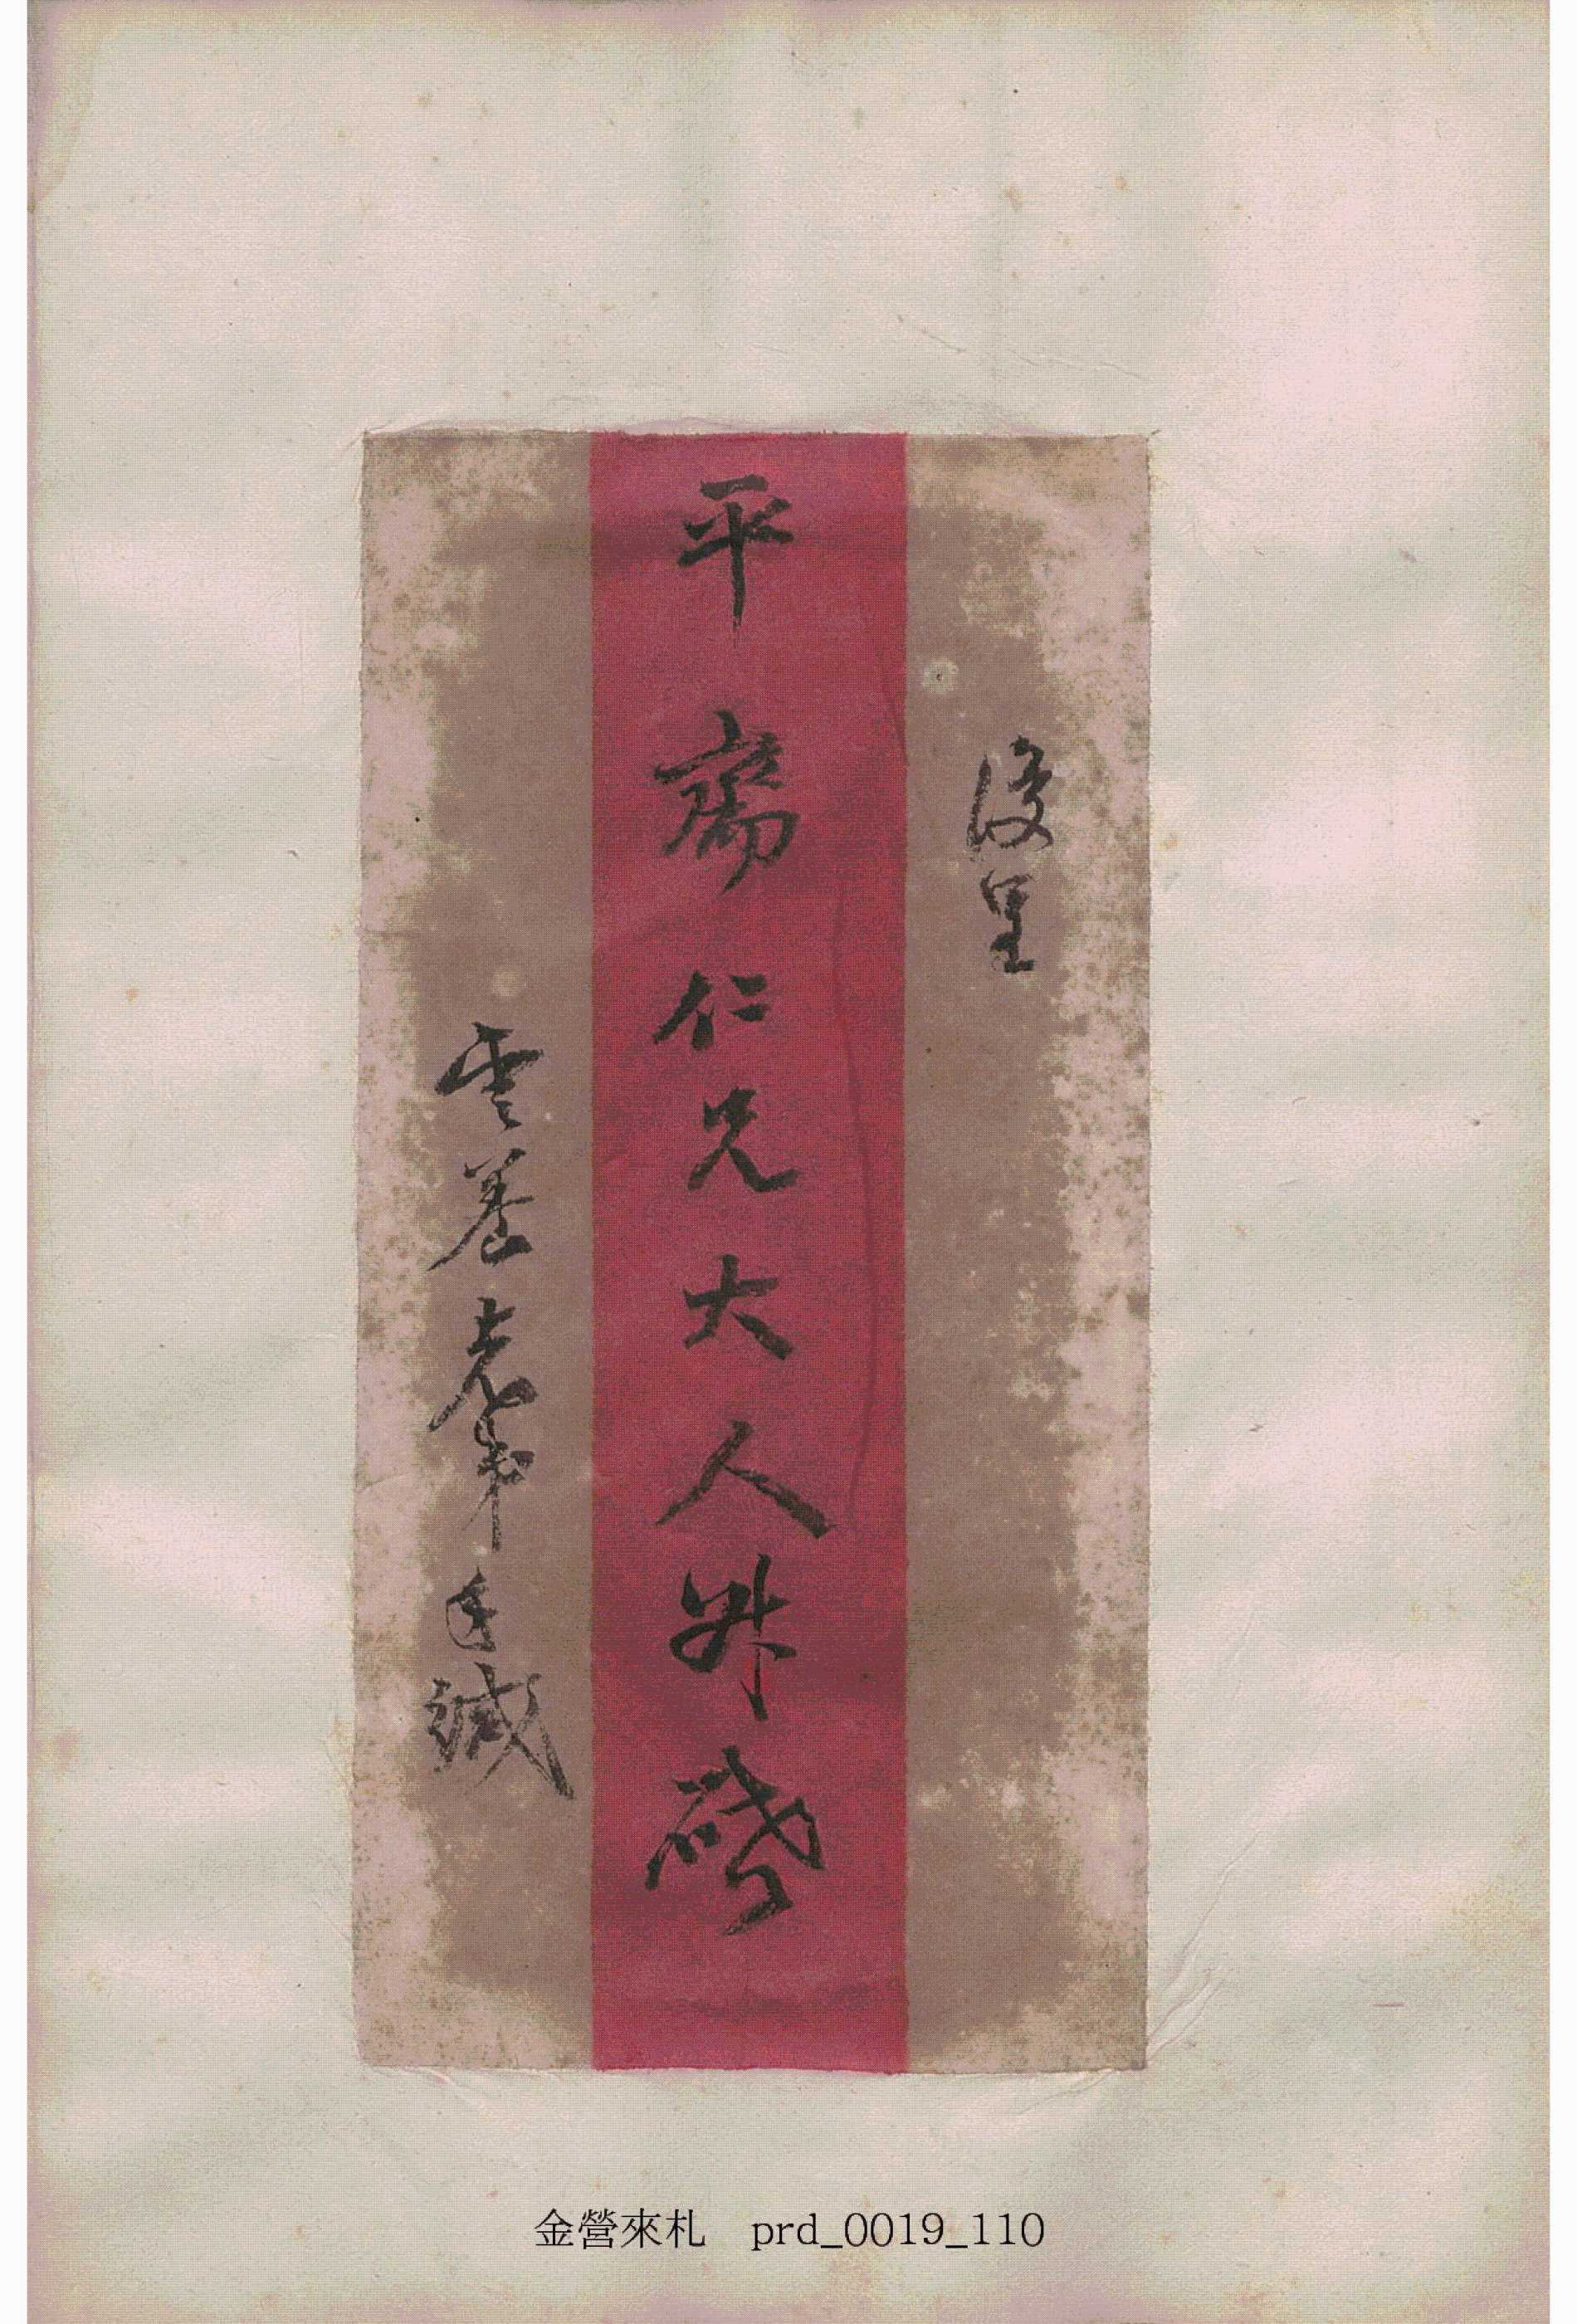 復呈
平齋仁兄大人升啟
雲養老弟手緘
金營來札 prd_0019_110